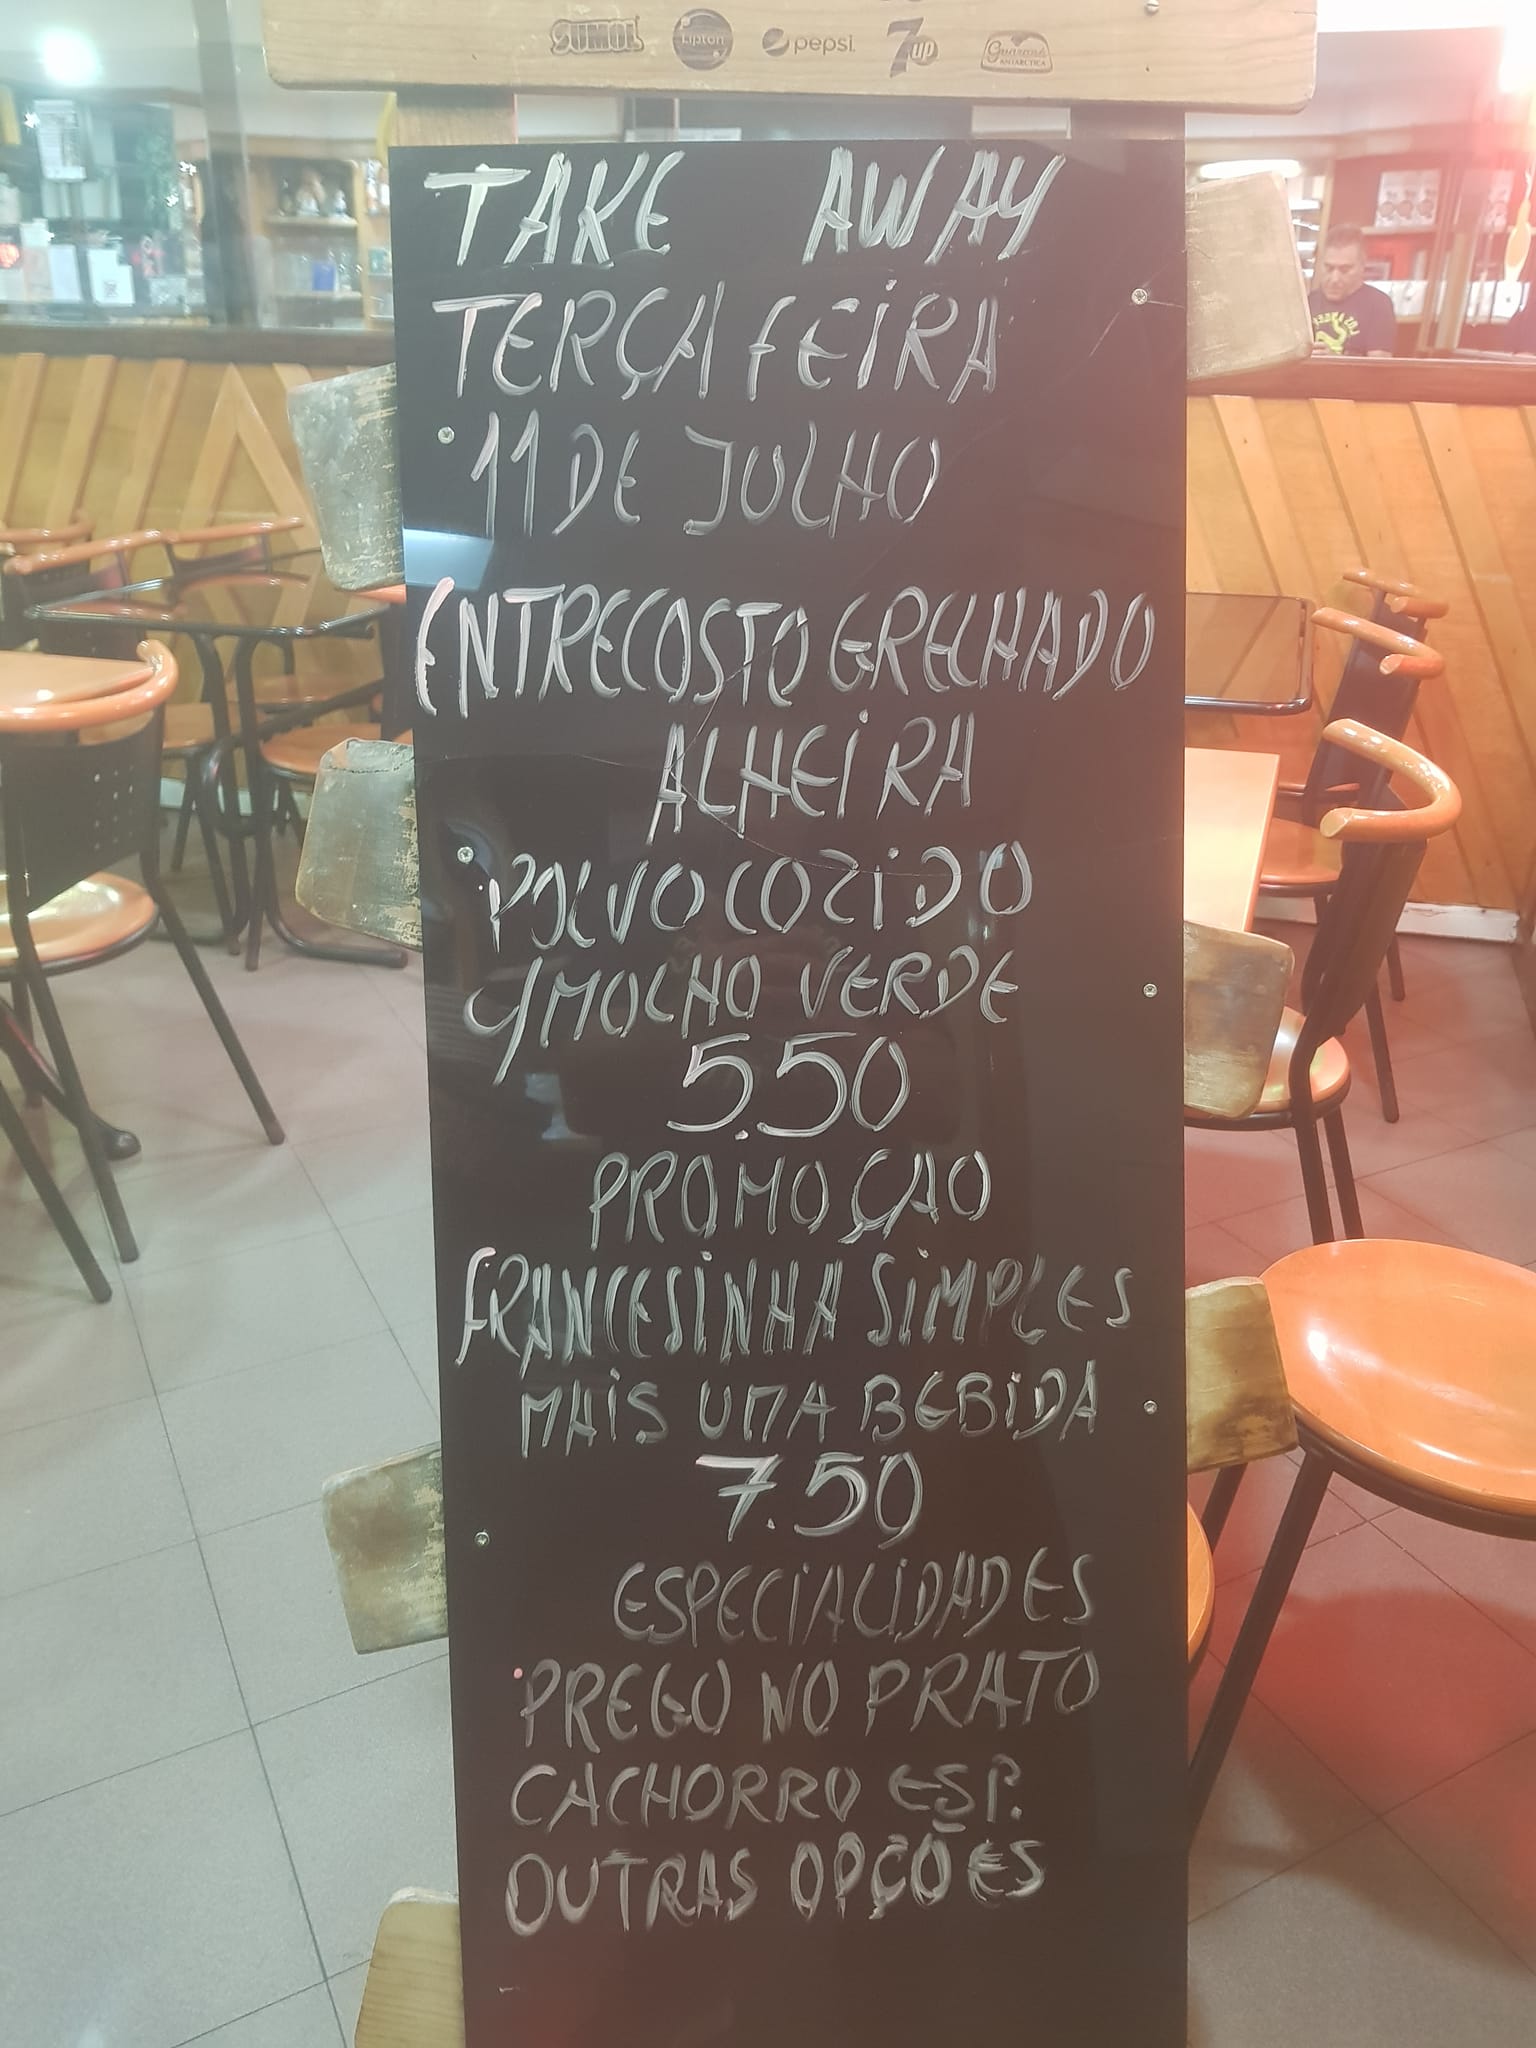 SUMOL Lipton pepsi 7up Guaraná ANTARCTICA
TAKE AWAY
TERÇA FEIRA
11 DE JULHO
ENTRECOSTO GRELHADO
ALHEIRA
POLVO COZIDO
C/MOLHO VERDE
5.50
PROMOÇAO
FRANCESINHA SIMPLES
MAIS UMA BEBIDA
7.50
ESPECIALIDADES
PREGO NO PRATO
CACHORRO ESP.
OUTRAS OPÇÕES